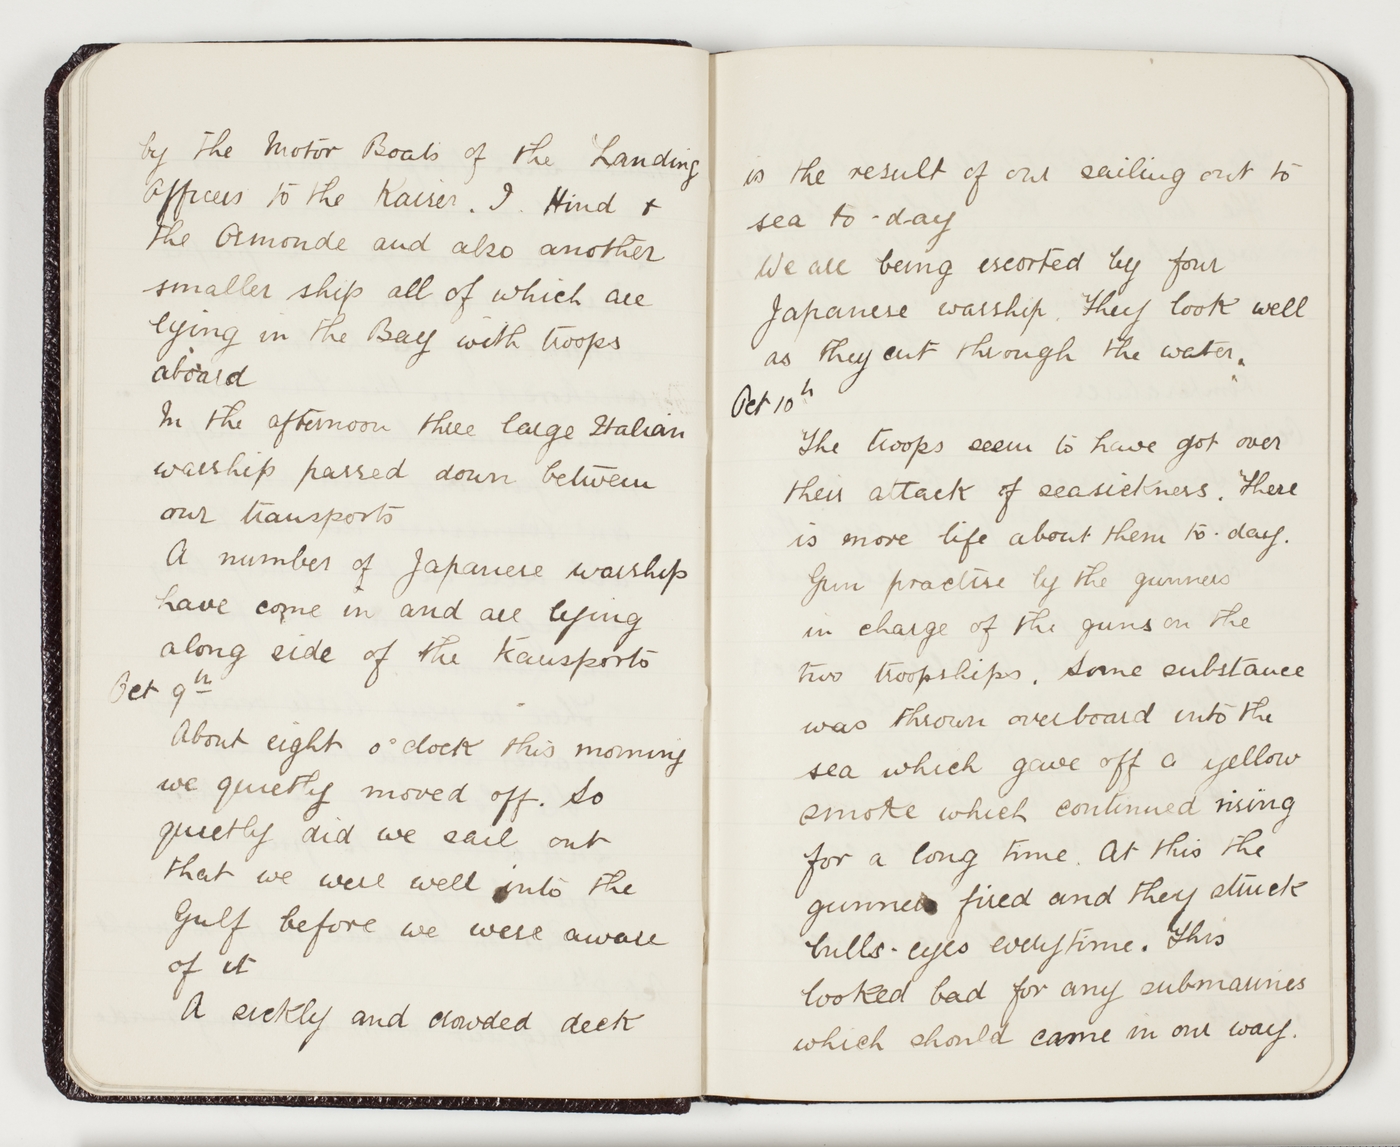 by the Motor Boats of the Landing
Officers to the Kaiser. I. Hind +
the Ormonde and also another
smaller ship all of which are
lying in the Bay with troops
aboard
In the afternoon three large Italian
warship passed down between
our transports
A number of Japanese warship
have come in and are lying
along side of the transports
Oct 9th
About eight o'clock this morning
we quietly moved off. So
quietly did we sail out
that we were well into the
Gulf before we were aware
of it
A sickly and crowded deck
is the result of our sailing out to
sea to-day
We are being escorted by four
Japanese warship. They look well
as they cut through the water.
Oct 10th
The troops seem to have got over
their attack of seasickness. There
is more life about them to-day.
Gun practise by the gunners
in charge of the guns on the
two troopships. Some substance
was thrown overboard into the
sea which gave off a yellow
smoke which continued rising
for a long time. At this the
gunners fired and they struck
bulls-eyes everytime. This
looked bad for any submarines
which should came in our way.